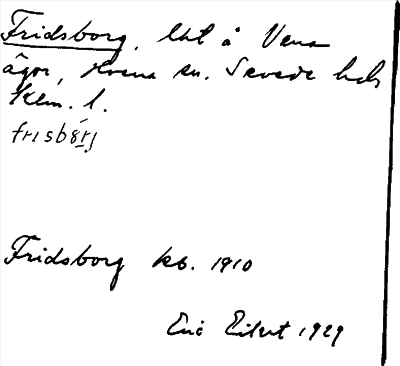 Fridsborg, lht å Vena
ägor, Hvena sn. Sevede hd
Klm. l.
frisbörj
Fridsborg kb. 1910
Eric Eilert 1929